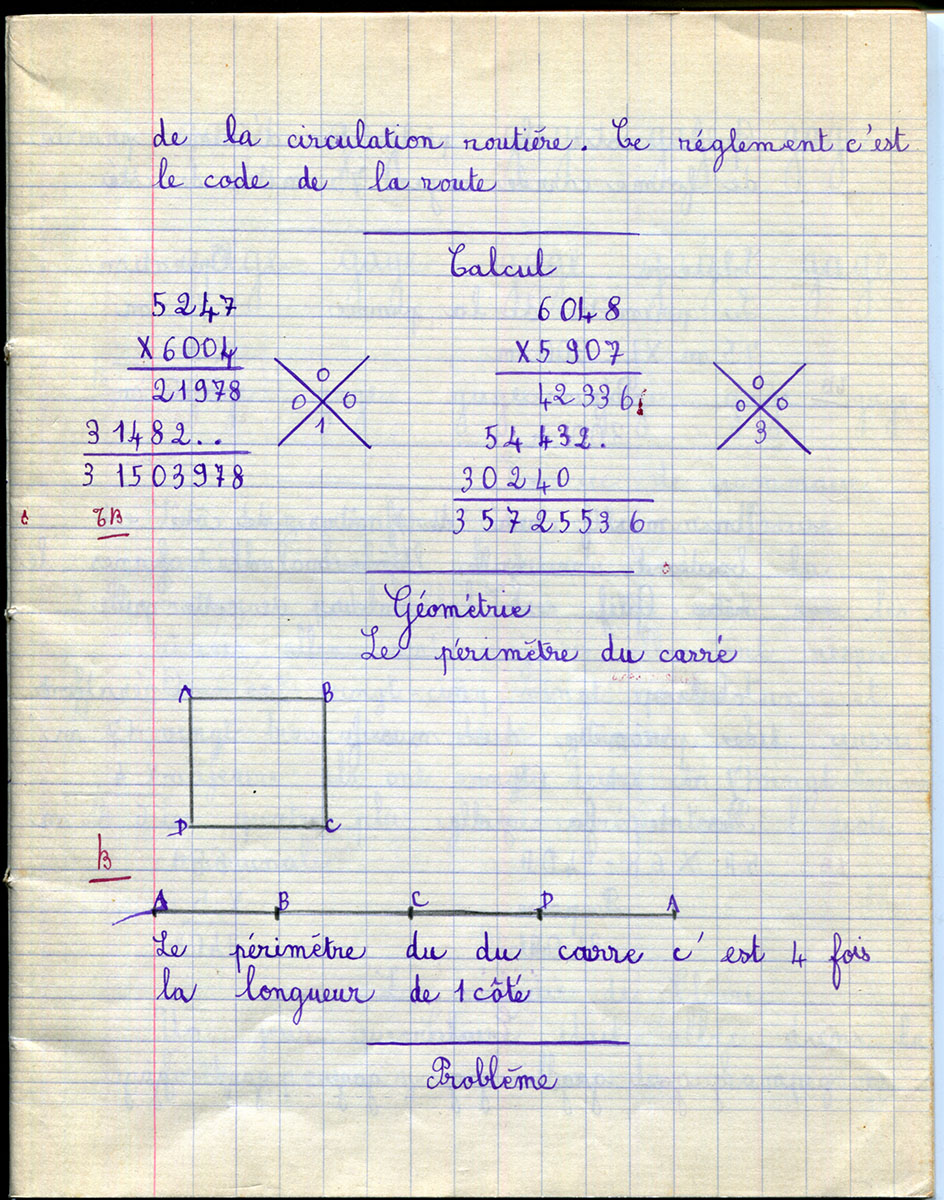 de la circulation routiére. Ce réglement c'est
le code de la route
Calcul
5247
X 6004
21978
31482..
31503978
0
0 0
1
TB
6048
X 5907
42336
54432.
30240
35725536
0
0 0
3
Géométrie
Le périmètre du carré
A B
D C
B
A B C D A
Le périmétre du du carre c'est 4 fois
la longueur de 1 côté
Probléme